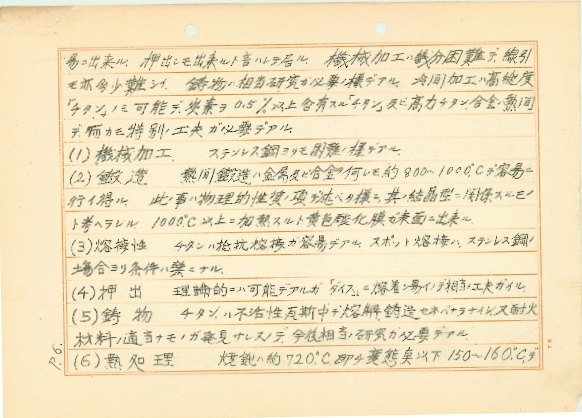 易ニ出来ル. 押出シモ出来ルト言ハレテ居ル. 機械加工ハ幾分困難デ, 線引
モ亦多少難シイ. 鋳物ハ相当研究ガ必要ノ様デアル. 冷間加工ハ高純度
「チタン」ノミ可能デ, 炭素ヲ 0.5%以上含有スル「チタン」及ビ高力チタン合金ハ熱間
デ而カモ特別ノ工夫ガ必要デアル.
(1) 機械加工. ステンレス鋼ヨリモ困難ノ様デアル.
(2) 鍛造 熱間鍛造ハ金属及ビ合金ノ何レモ約 800〜1000℃デ容易ニ
行イ得ル. 此ノ事ハ物理的性質ノ項デ述ベタ様ニ, 其ノ結晶型ニ関係スルモノ
ト考ヘラレル. 1000℃以上ニ加熱スルト黄色酸化膜ガ表面ニ出来ル.
(3) 熔接性 チタンハ抵抗熔接ガ容易デアル. スポット熔接ハ, ステンレス鋼ノ
場合ヨリ条件ハ楽ニナル.
(4) 押出 理論的ニハ可能デアルガ「ダイス」ニ熔着シ易イノデ相当ノ工夫ガイル.
(5) 鋳物 チタンハ不活性瓦斯中デ熔解鋳造セネバナラナイシ, 又耐火
材料ノ適当ナモノガ発見サレヌノデ, 今後相当ノ研究ガ必要デアル.
(6) 熱処理 焼鈍ハ約 720℃, 即チ変態点以下 150〜160℃, デ
P.6.